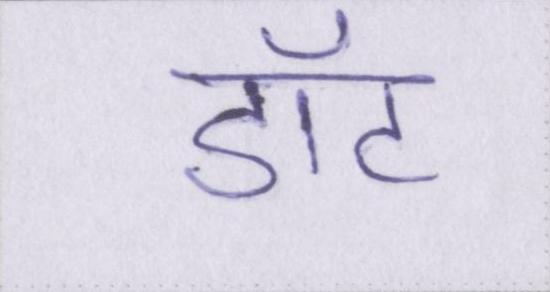 डॉट